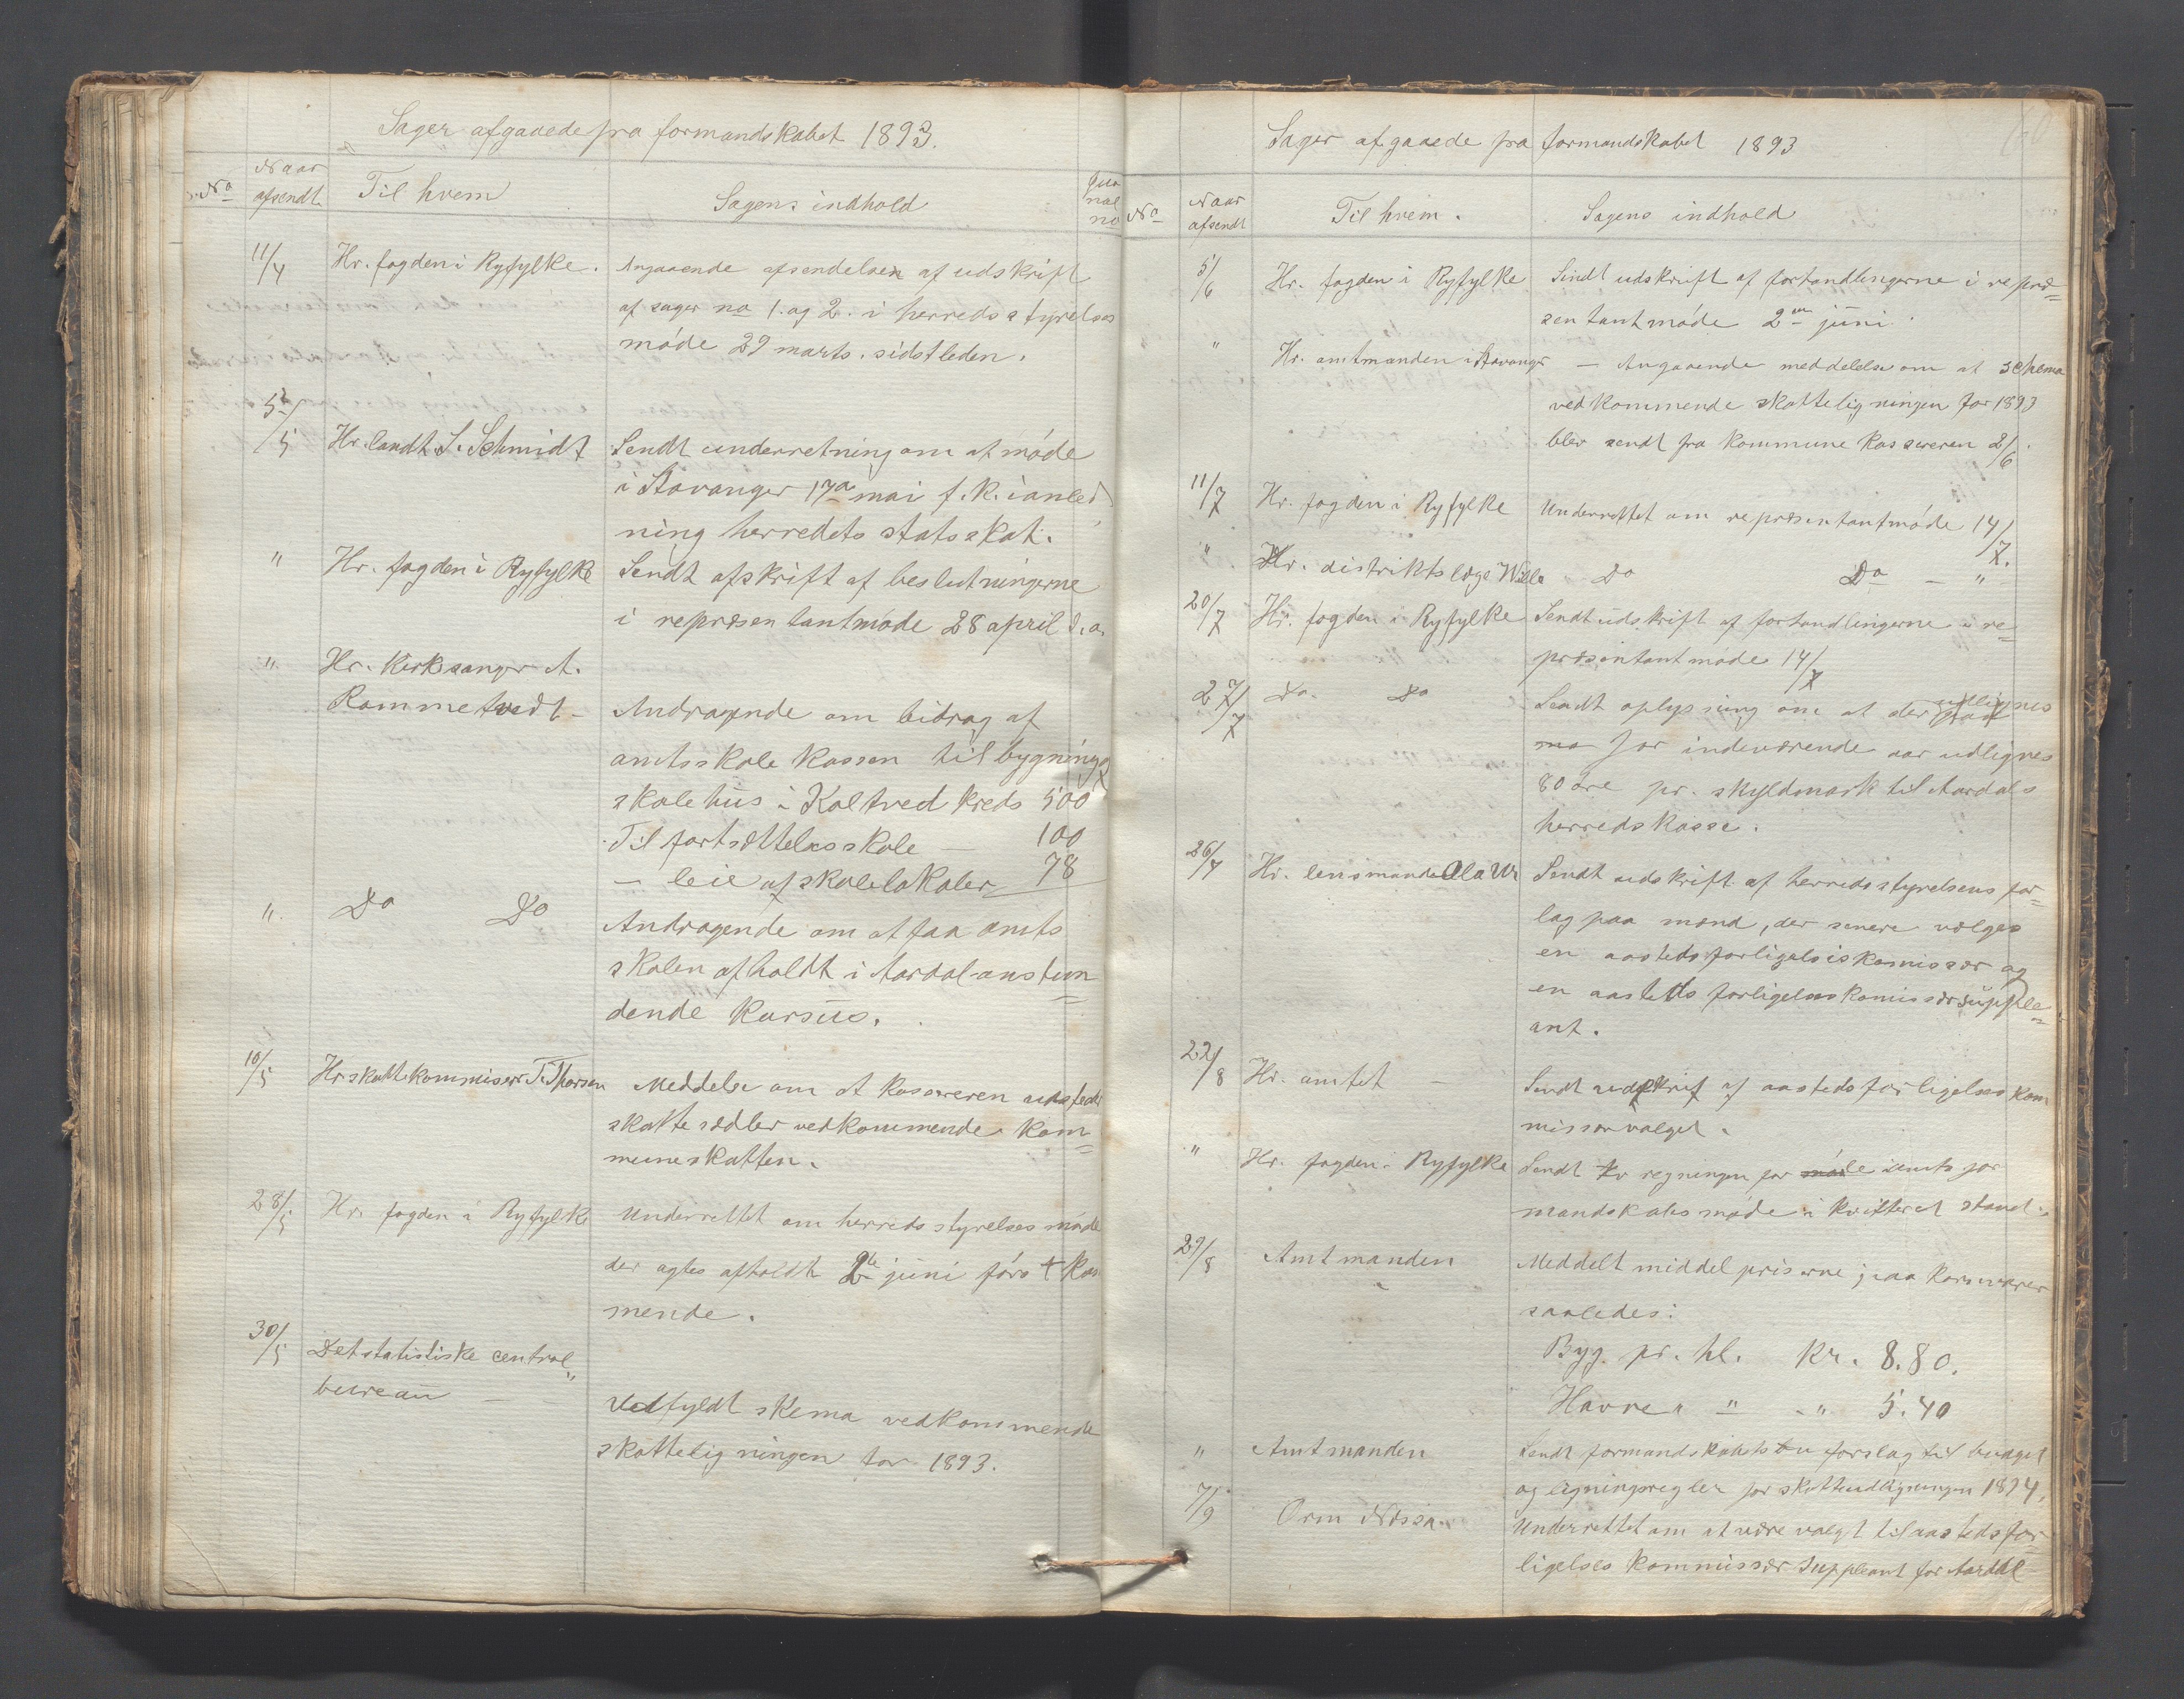 Sager afgaaede fra formandskabet 1893.
No
Naar
afsendt.
Til hvem
Sagens indhold
11/4 Hr. fogden i Ryfylke. Angaaende afsendelsen af udskrift
af sager no 1. og 2. i herredsstyrelses
møde 29 marts. sidstleden.
5/5 Hr. landt S. Schmidt Sendt underretning om at møde
i Stavanger 17de mai f. k. i anled
ning herredets statsskat.
" Hr. fogden i Ryfylke Sendt afskrift af beslutningerne
i repræsentantmøde 28 april d. a.
" Hr. Kirksanger A.
Rommetvedt - Andragende om bidrag af
amtsskolekassen til bygning af
skolehus i Kaltved kreds 500
Til fortsættelsesskole — 100
— leie af skolelokaler 78
" Do Do
Andragende om at faa amts
skolen afholdt i Aardal anstun=
dende kursus.
10/5 Hr skattekommisær T. Thorsen Meddelse om at kassereren udstede
skattesedler vedkommende kom=
muneskatten.
28/5 Hr. fogden i Ryfylke Underrettet om herredsstyrelsesmøde
der agtes afholdt 2de juni først kom
mende.
30/5 Det statistiske central
bureau — Udfyldt skema vedkommende
skatteligningen for 1893.
Sager afgaaede fra formandskabet 1893
No
Naar
afsendt
Til hvem.
Sagens indhold
5/6 Hr. fogden i Ryfylke Sendt udskrift af forhandlingerne i repræ=
sentantmøde 2den juni
" Hr. amtmanden i Stavanger — Angaaende meddelelse om at schema
vedkommende skatteligningen for 1893
blev sendt fra kommunekassereren 2/6.
11/7 Hr. fogden i Ryfylke Underrettet om repræsentantmøde 14/7.
" Hr. distriktslæge Wille Do Do — "
20/7 Hr. fogden i Ryfylke Sendt udskrift af forhandlingerne i re=
præsentantmøde 14/7
27/7 Do. Do Sendt oplysning om at der udlignes
for indeværende aar udlignes
80 øre pr. skyldmark til Aardals
herredskasse.
26/7 Hr. lensmand Sendt udskrift af herredsstyrelsens for=
lag paa mænd, der senere vælges
en aastedsforligelsiskomissær og
en aasteds forligelseskomissærsupple=
ant.
22/8 Hr. amtet — Sendt udskrif af aastedsforligelseskom
missærvalget.
" Hr. fogden i Ryfylke Sendt to regninger for møde amtsfor
mandskabsmøde i kvitteret stand.
29/8 Amtmanden Meddelt middelpriserne paa kornvarer
saaledes:
Byg pr. hl. Kr. 8.80.
Havre " " " 5.40
" Amtmanden Sendt formandskabets forslag til budget
og ligningsregler for skatteudligningen 1894.
7/9 Orm Nessa. Underrettet om at være valgt til aastedsfor=
ligelses kommissær suppleant for Aardal